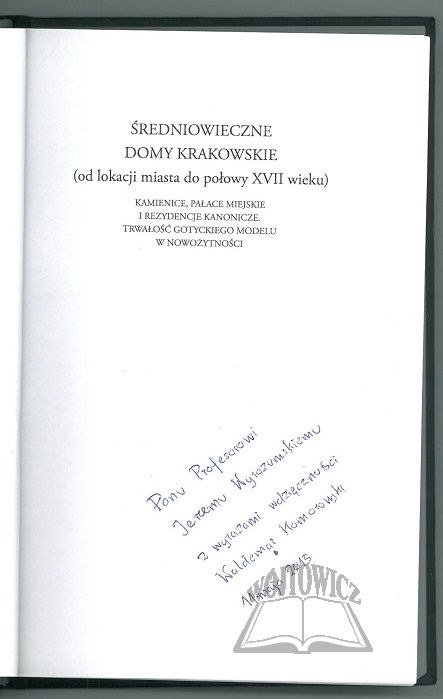 ŚREDNIOWIECZNE
DOMY KRAKOWSKIE
(od lokacji miasta do połowy XVII wieku)
KAMIENICE, PAŁACE MIEJSKIE
I REZYDENCJE KANONICZE.
TRWAŁOŚĆ GOTYCKIEGO MODELU
W NOWOŻYTNOŚCI
Panu Profesorowi
Jerzemu Wyrozumskiemu
z wyrazami wdzięczności
Waldemar Komorowski
maja 2015
WÓJTOWICZ